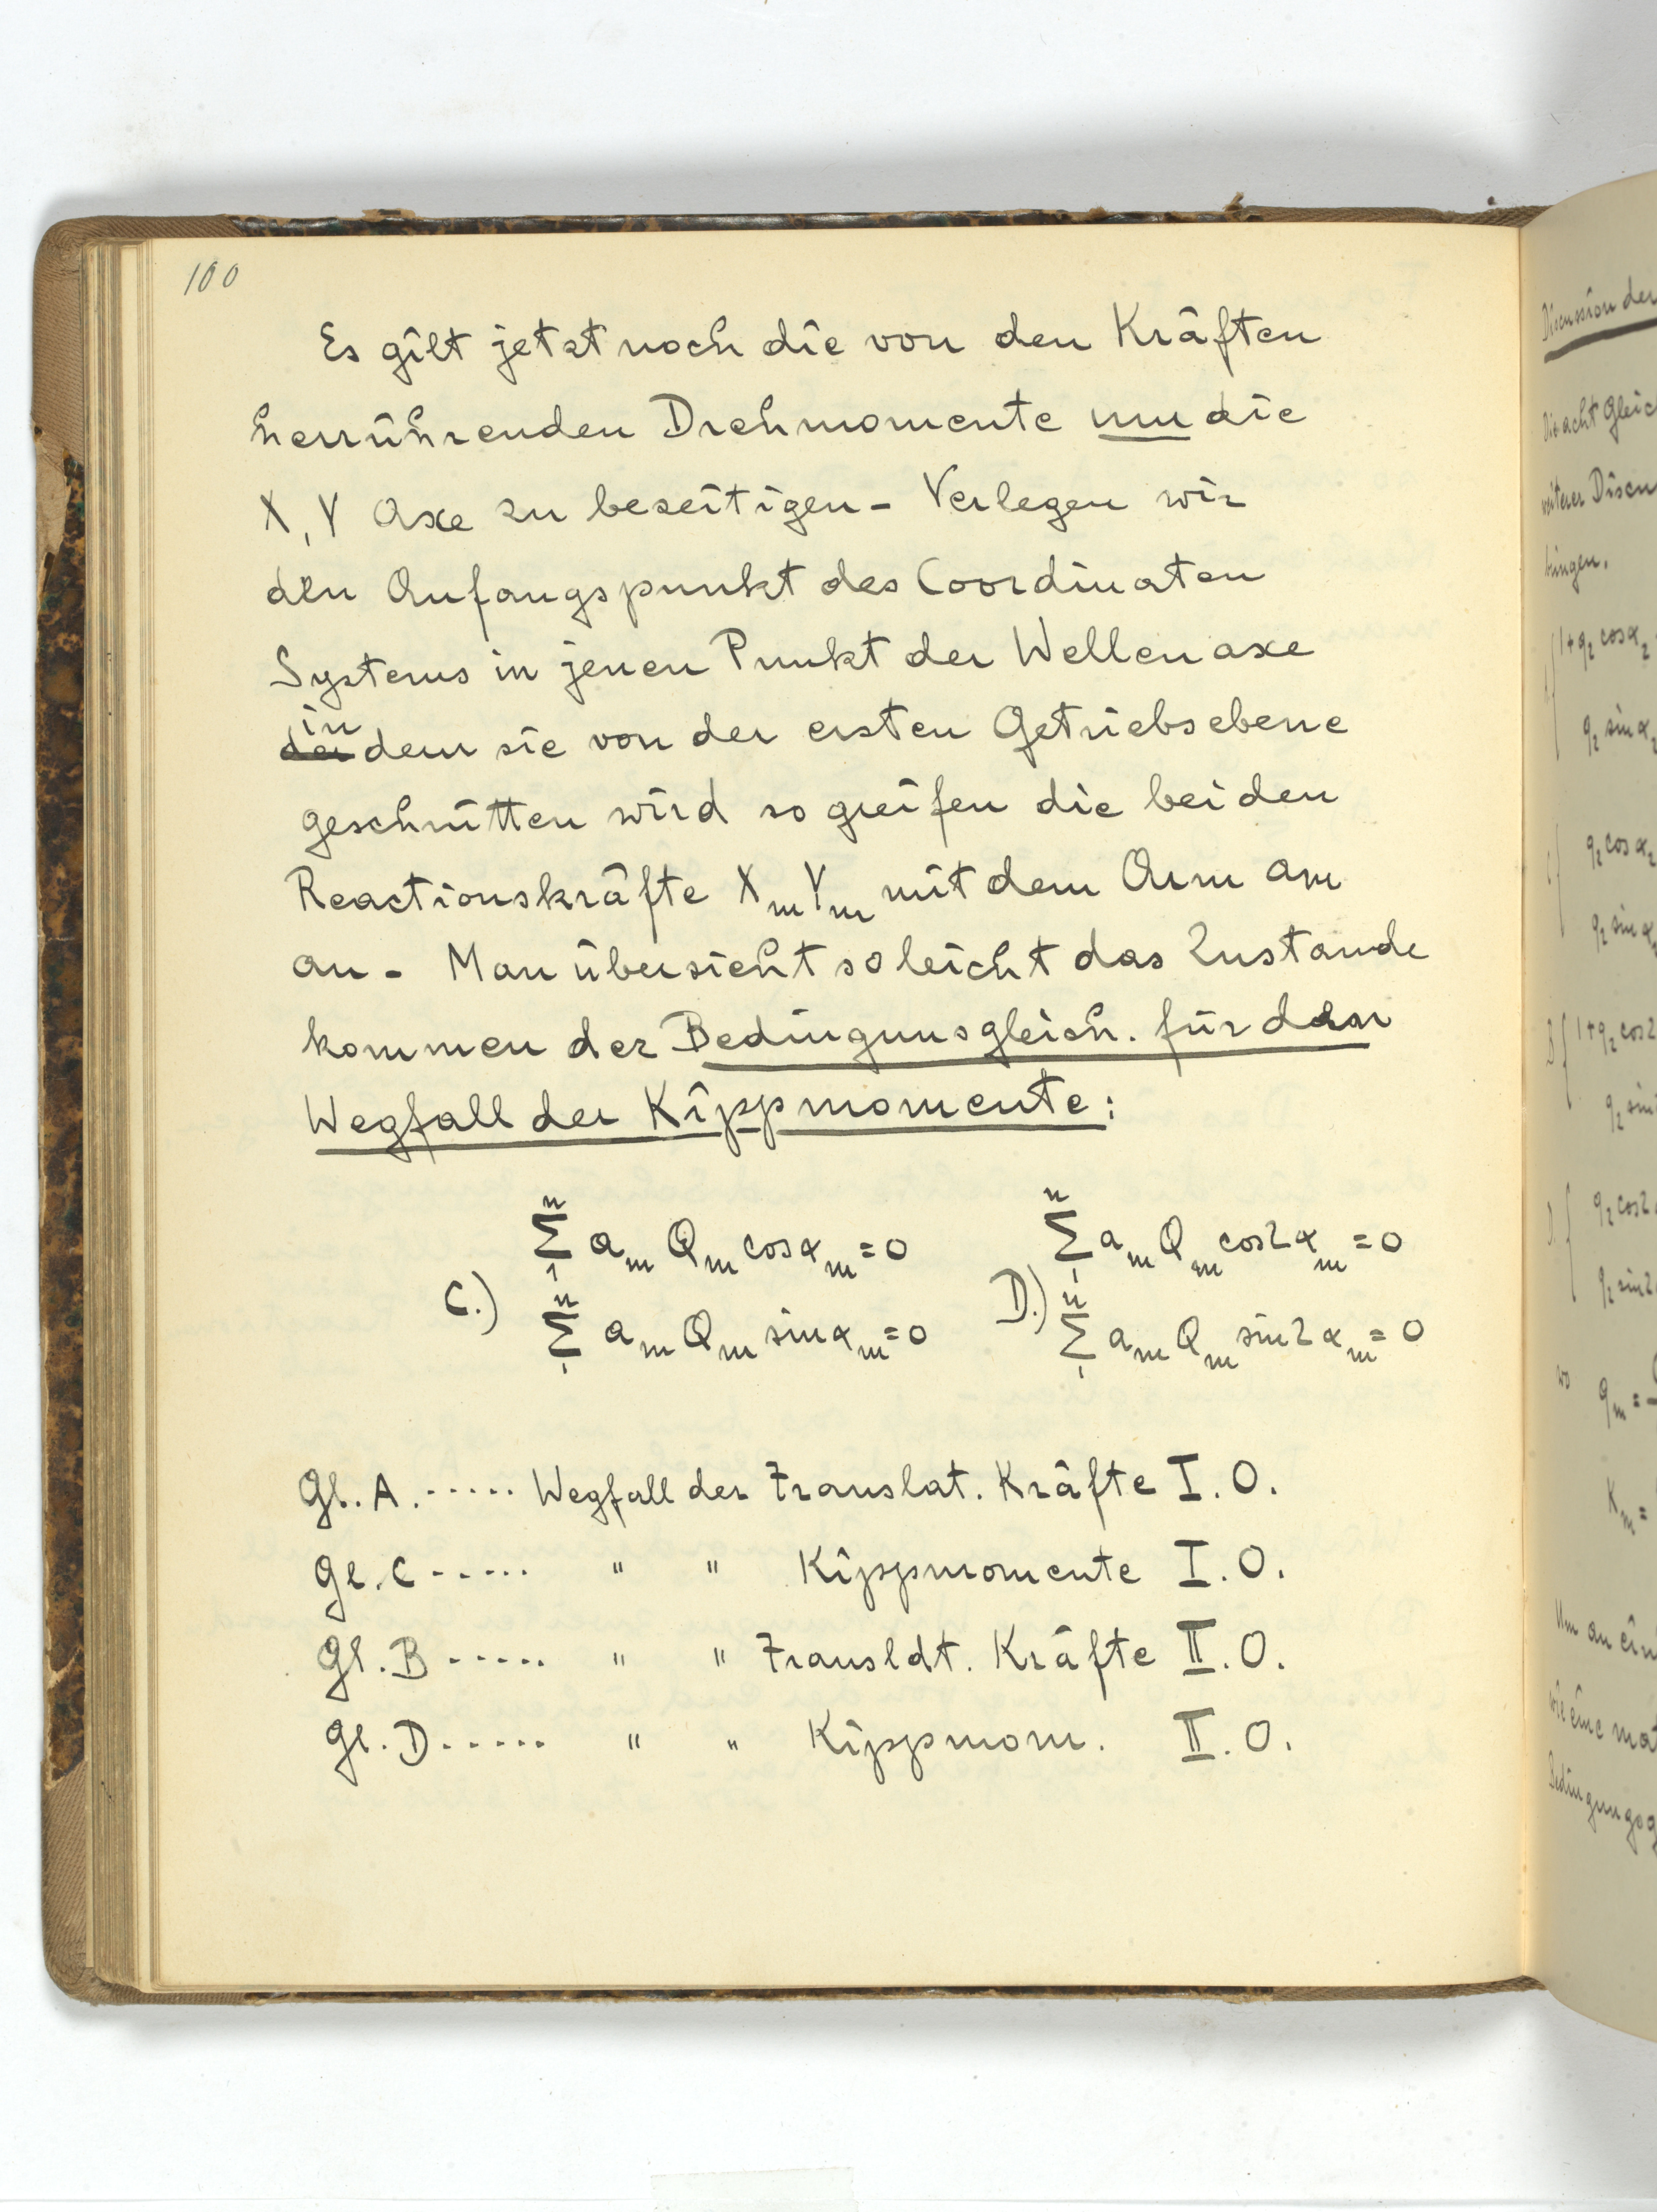 100
Es gilt jetzt noch die von den Kräften
herrührenden Drehmomente um die
X, Y Axe zu beseitigen - Verlegen wir
den Anfangspunkt des Coordinaten
Systems in jenen Punkt der Wellenaxe
in
der dem sie von der ersten Getriebsebene
geschnitten wird so greifen die beiden
Reactionskräfte Xm Ym mit dem Arm am
an - Man übersieht so leicht das Zustande
kommen der Bedingunsgleich. für den
Wegfall der Kippmomente:
C.) n Σ 1 am Qm cos αm = 0
n Σ 1 am Qm sin αm = 0
D.) n Σ 1 am Qm cos 2 αm = 0
n Σ 1 am Qm sin 2 αm = 0
Gl. A. ...... Wegfall der Translat. Kräfte I. O.
Gl. C ...... " " Kippmomente I. O.
Gl. B ...... " " Translat. Kräfte II. O.
Gl. D ...... " " Kippmom. II. O.
Discussion der
Die acht Gleic
weiterer Discu
bringen.
1+q2 cos α2
q2 sin α2
q2 cos α2
q2 sin α2
B 1+q2 cos 2
q2 sin
D. q2 cos 2
q2 sin 2
wo qm =
Km =
Um an ein
wie eine mat
Bedingungsg